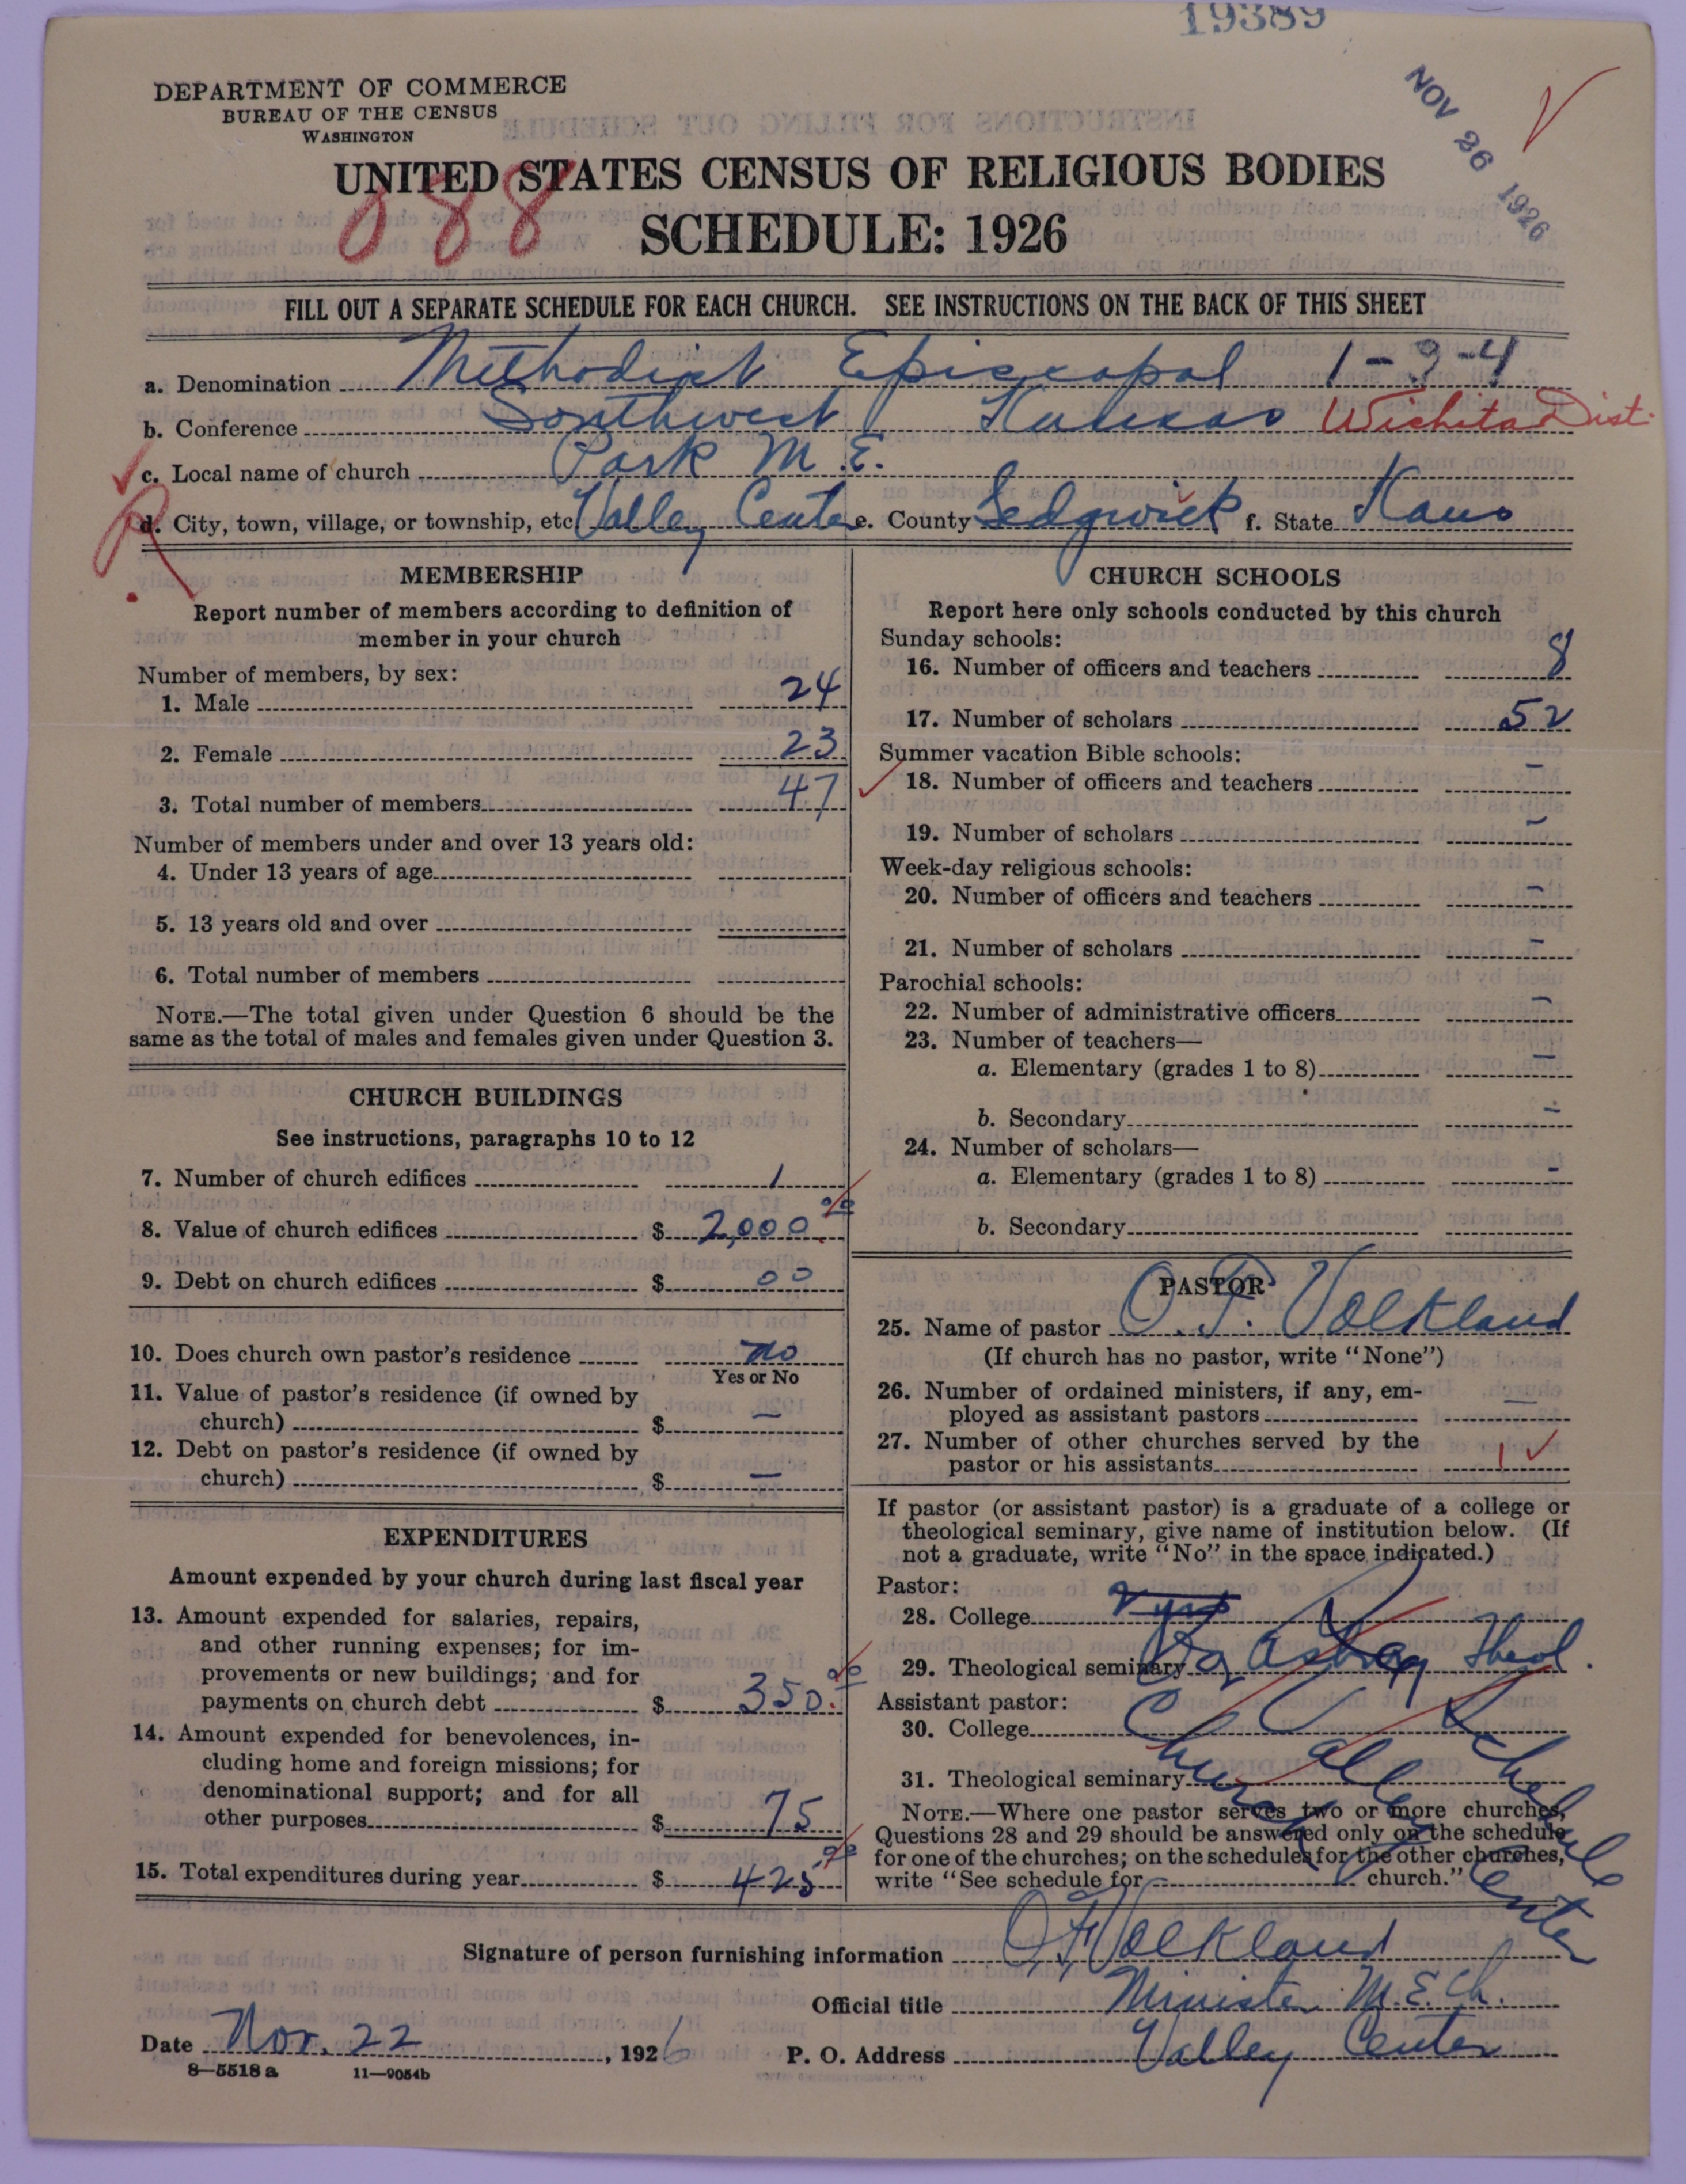 19389
DEPARTMENT OF COMMERCE
BUREAU OF THE CENSUS
WASHINGTON
NOV 26 1926
UNITED STATES CENSUS OF RELIGIOUS BODIES
088
SCHEDULE: 1926
FILL OUT A SEPARATE SCHEDULE FOR EACH CHURCH. SEE INSTRUCTIONS ON THE BACK OF THIS SHEET
a. Denomination Methodist Episcopal 1-9-4
b. Conference Southwest Kansas Wichita Dist.
c. Local name of church Park M.E.
d. City, town, village, or township, etc. Valley Center e. County Sedgwick f. State Kans
MEMBERSHIP
Report number of members according to definition of
member in your church
Number of members, by sex:
1. Male 24
2. Female 23
3. Total number of members 47
Number of members under and over 13 years old:
4. Under 13 years of age
5. 13 years old and over
6. Total number of members
NOTE.—The total given under Question 6 should be the
same as the total of males and females given under Question 3.
CHURCH BUILDINGS
See instructions, paragraphs 10 to 12
7. Number of church edifices 1
8. Value of church edifices $ 2,000
9. Debt on church edifices $ 00
10. Does church own pastor's residence no
Yes or No
11. Value of pastor's residence (if owned by
church) $ —
12. Debt on pastor's residence (if owned by
church) $ —
EXPENDITURES
Amount expended by your church during last fiscal year
13. Amount expended for salaries, repairs,
and other running expenses; for im-
provements or new buildings; and for
payments on church debt $ 350.
14. Amount expended for benevolences, in-
cluding home and foreign missions; for
denominational support; and for all
other purposes $ 75
15. Total expenditures during year $ 425
CHURCH SCHOOLS
Report here only schools conducted by this church
Sunday schools:
16. Number of officers and teachers 8
17. Number of scholars 52
Summer vacation Bible schools:
18. Number of officers and teachers —
19. Number of scholars —
Week-day religious schools:
20. Number of officers and teachers —
21. Number of scholars —
Parochial schools:
22. Number of administrative officers —
23. Number of teachers—
a. Elementary (grades 1 to 8) —
b. Secondary —
24. Number of scholars—
a. Elementary (grades 1 to 8) —
b. Secondary
PASTOR
25. Name of pastor O. F. Volkland
(If church has no pastor, write "None")
26. Number of ordained ministers, if any, em-
ployed as assistant pastors —
27. Number of other churches served by the
pastor or his assistants 1
If pastor (or assistant pastor) is a graduate of a college or
theological seminary, give name of institution below. (If
not a graduate, write "No" in the space indicated.)
Pastor:
28. College
29. Theological seminary Theol.
Assistant pastor:
30. College
31. Theological seminary
NOTE.—Where one pastor serves two or more churches,
Questions 28 and 29 should be answered only on the schedule
for one of the churches; on the schedules for the other churches,
write "See schedule for church."
Signature of person furnishing information O. F. Volkland
Official title Minister M.E. Ch.
Date Nov. 22, 1926 P. O. Address Valley Center
8—5518 a 11—9054b